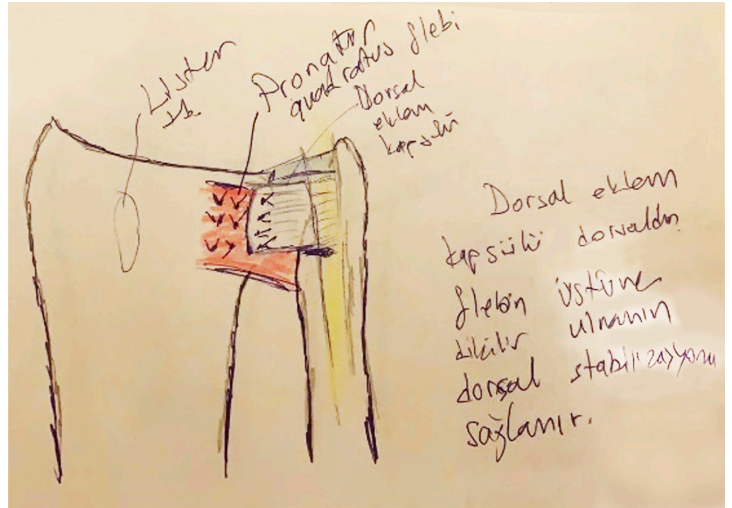 Lister
tb.
Pronator
quadratus flebi
Dorsal
eklem
kapsülü
Dorsal eklem
kapsülü dorsaldan
flebin üstüne
dikilir ulnanın
dorsal stabilizasyonu
sağlanır.